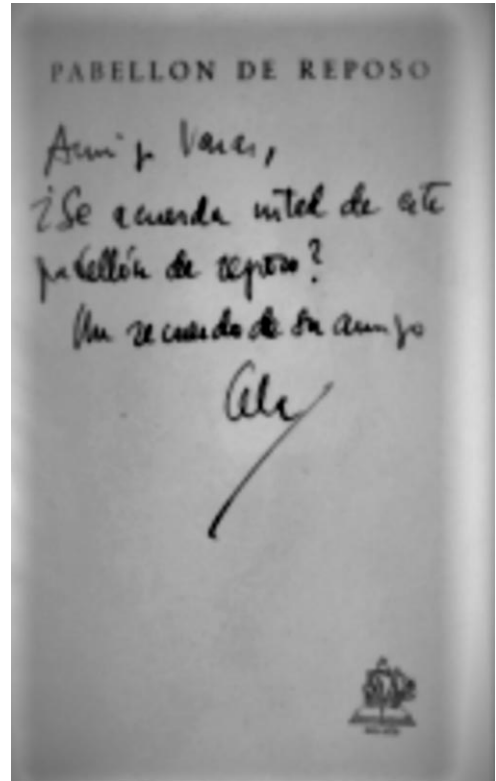 PABELLON DE REPOSO
Amigo Varas,
¿Se acuerda usted de este
pabellón de reposo?
Un recuerdo de su amigo
Cela